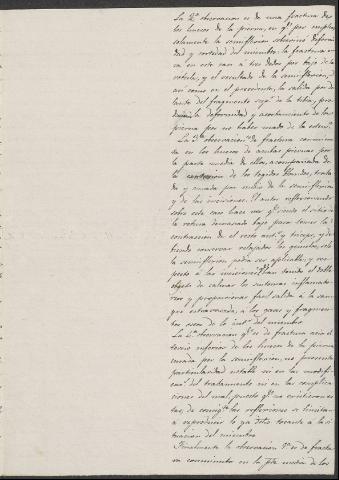 La 2ª observacion es de una fractura de
los huesos de la pierna, en qe por emplear
solamente la semiflexion sobrevino deformi
dad y cortedad del miembro. la fractura es
va en este caso á tres dedos por bajo de la
rotula, y el resultado de la semiflexion,
asi como en el precedente, la salida por de
lante del fragmento supr de la tibia, pro
la deformidad y acortamiento de la
pierna por no haber usado de la estensn
La 3ª observacion de fractura conminu
ta en los huesos de ambas piernas por
la parte media de ellas, acompañada de
la contusion de los tegidos blandos, trata
da y curada por medio de la semiflexion
y de las incisiones. El autor reflexionando
sobre este caso hace ver qe siendo el sitio de
la rotura demasiado bajo para temer la
contraccion de el recto antr y triceps, y de
biendo conservar relajados los gemelos, solo
la semiflexion podia ser aplicable, y res
pecto á las incisiones qe han tenido el doble
objeto de calmar los sintomas inflamato
rios y proporcionar facil salida á la san
gre estravasada, á los gases y fragmen
tos oseos de la del miembro
La 4ª observacion qe es de fractura acia el
tercio inferior de los huesos de la pierna
curada por la semiflexion, no presenta
particularidad notable ni en las modifi
cans del tratamiento ni en las complica
ciones del mal, puesto qe no existieron es
tas, de consigte las reflexiones se limitan
á reproducir lo ya dicho tocante á la si
tuacion del miembro
Finalmente la observacion 5ª es de fractu
ra conminuta en la pte media de los